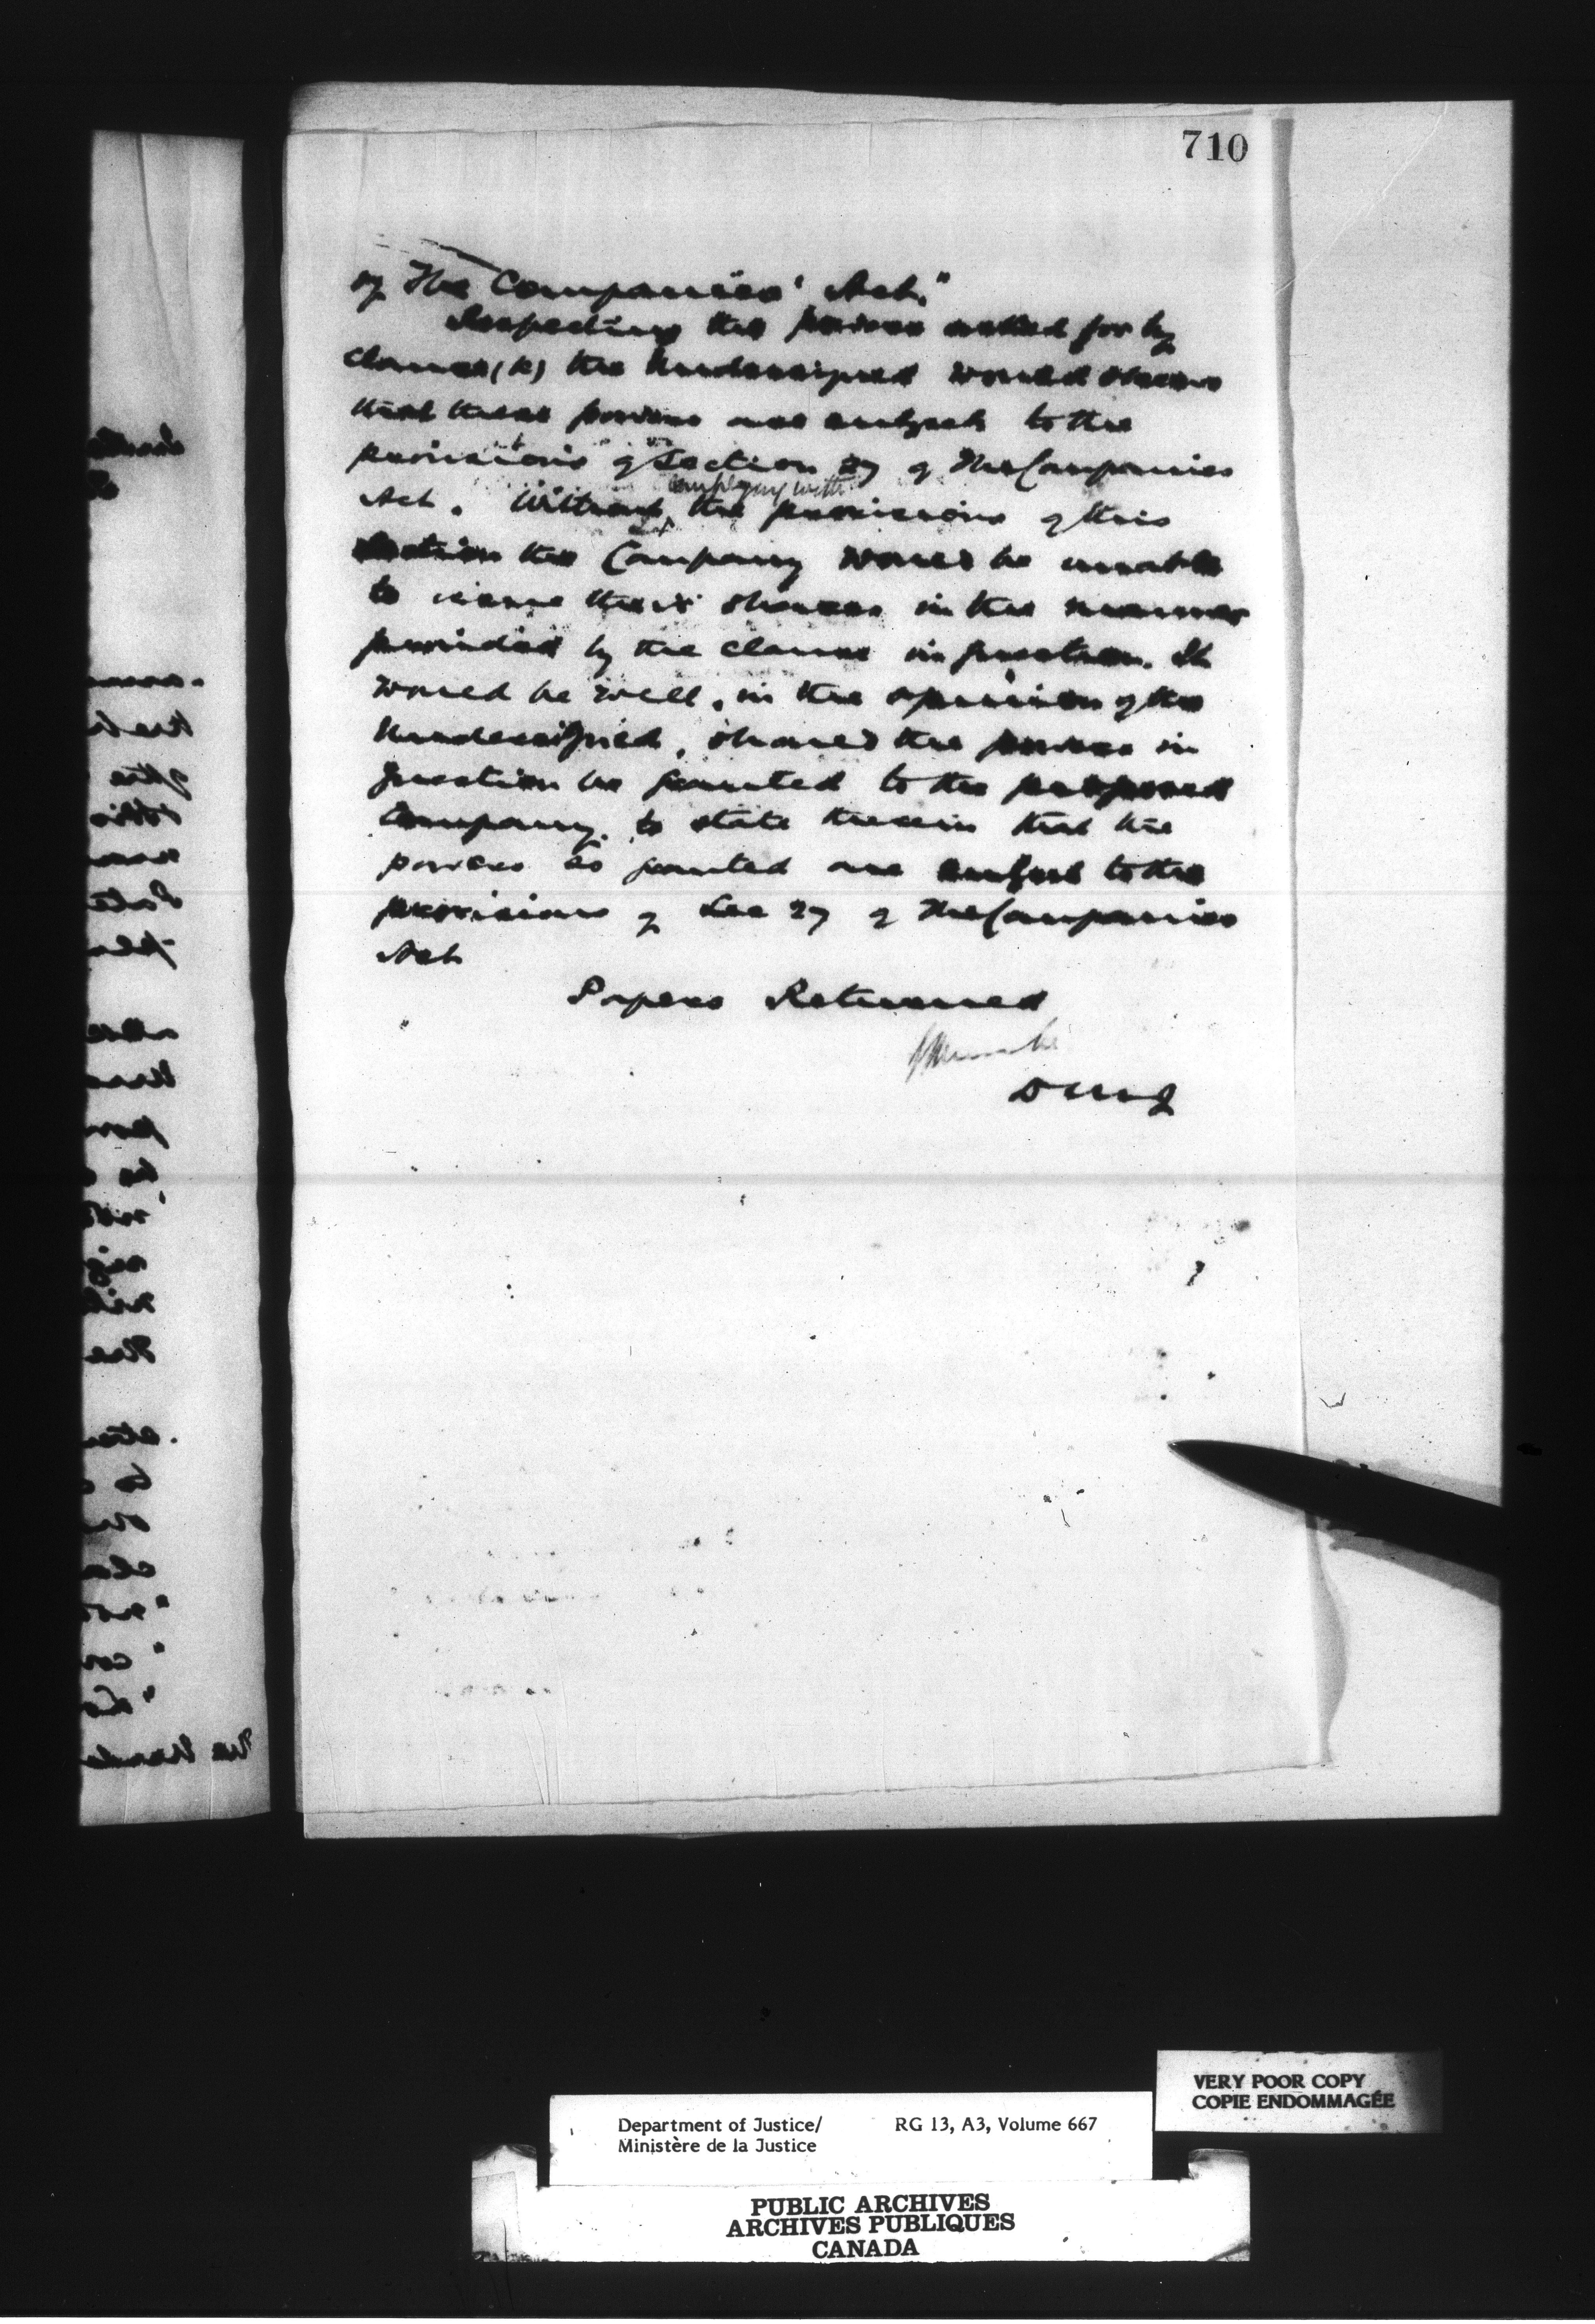 710
of The Companies' Act."
Respecting the powers asked for by
clause (k) the Undersigned would observe
that these powers are subject to the
provisions of Section 27 of The Companies
Act. Without complying with the provisions of this
Section the Company would be unable
to issue their shares in the manner
provided by the clause in question. It
would be well, in the opinion of the
Undersigned, should the powers in
question be granted to the proposed
Company, to state therein that the
powers so granted are subject to the
provisions of Sec 27 of The Companies
Act
Papers Returned
D M J
VERY POOR COPY
COPIE ENDOMMAGÉE
Department of Justice/ RG 13, A3, Volume 667
Ministère de la Justice
PUBLIC ARCHIVES
ARCHIVES PUBLIQUES
CANADA